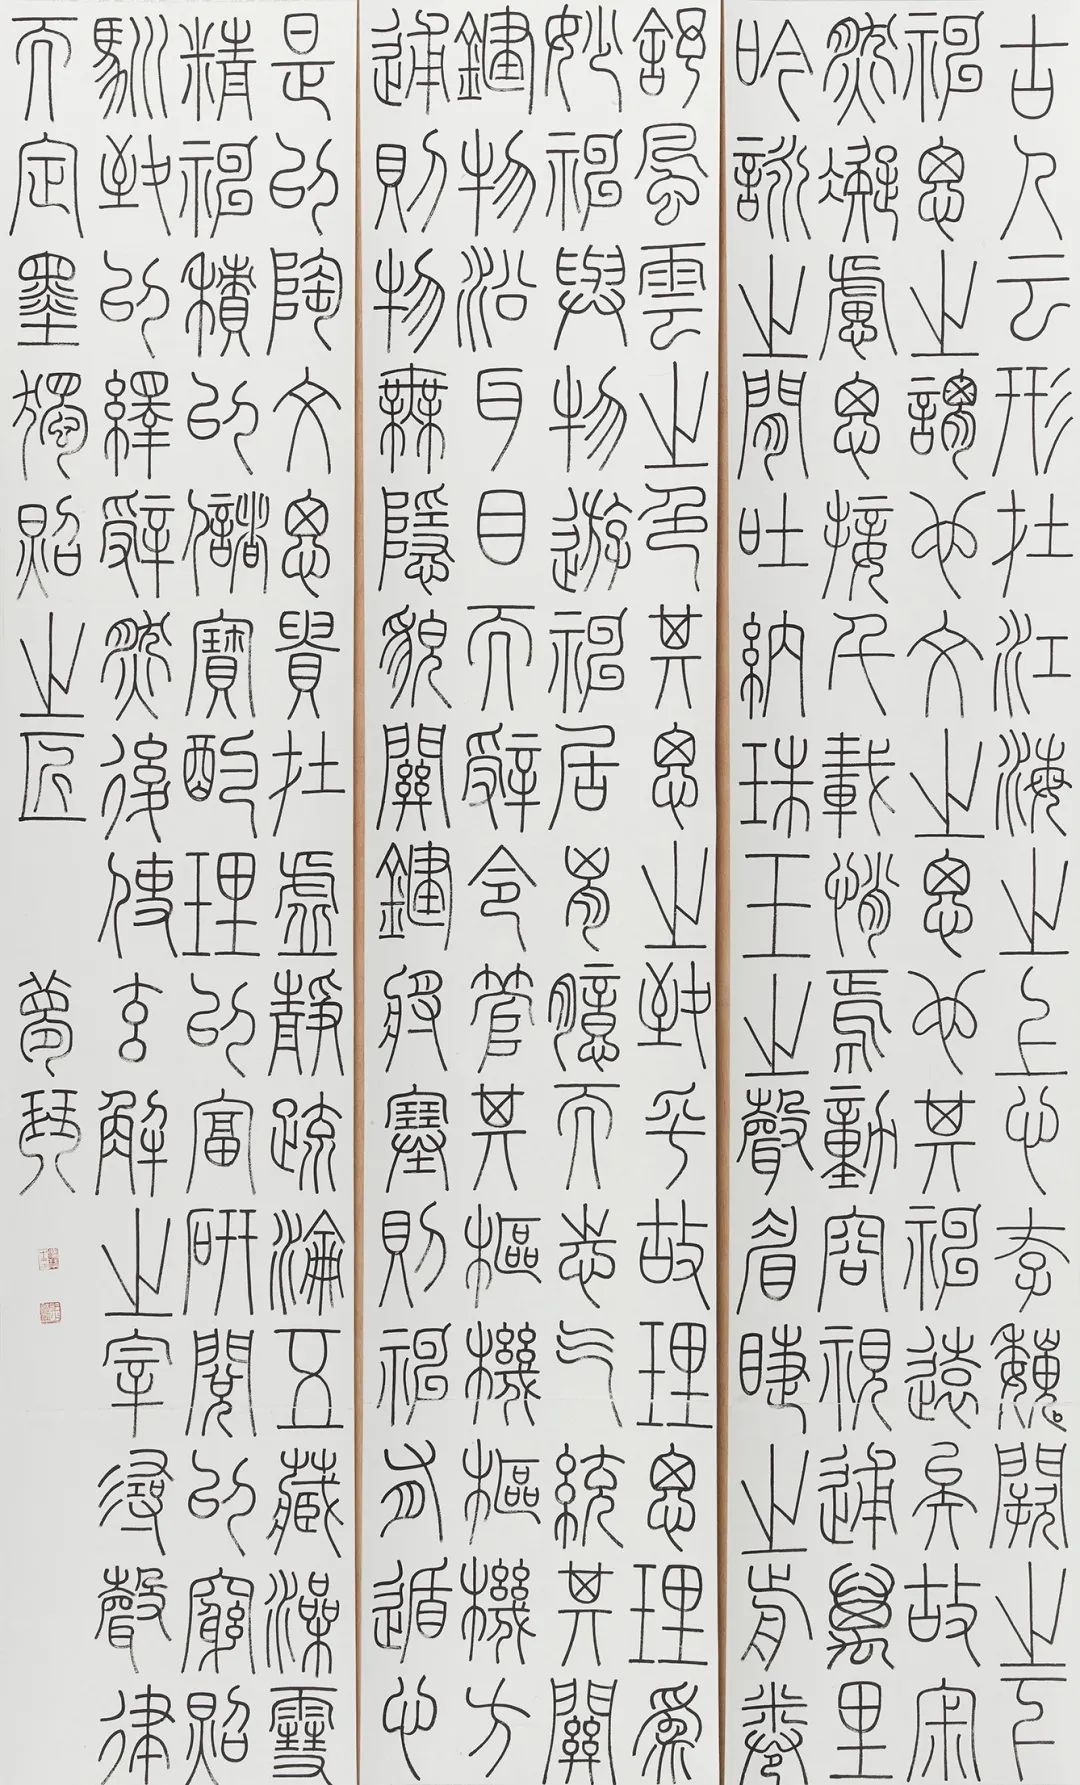 古人云形在江海之上心存魏闕之下
神思之謂也文之思也其神遠矣故寂
然凝慮思接千載悄焉動容視通萬里
吟詠之間吐納珠玉之聲眉睫之前卷
舒風雲之色其思之致乎故理思理為
妙神與物遊神居胸臆而志氣統其關
鍵物沿耳目而辭令管其樞機樞機方
通則物無隱貌關鍵將塞則神有遁心
是以陶文思貴在虛靜疏瀹五藏澡雪
精神積以儲寶酌理以富研閱以窮照
馴致以繹辭然後使玄解之宰尋聲律
而定墨獨照之匠
夢琴